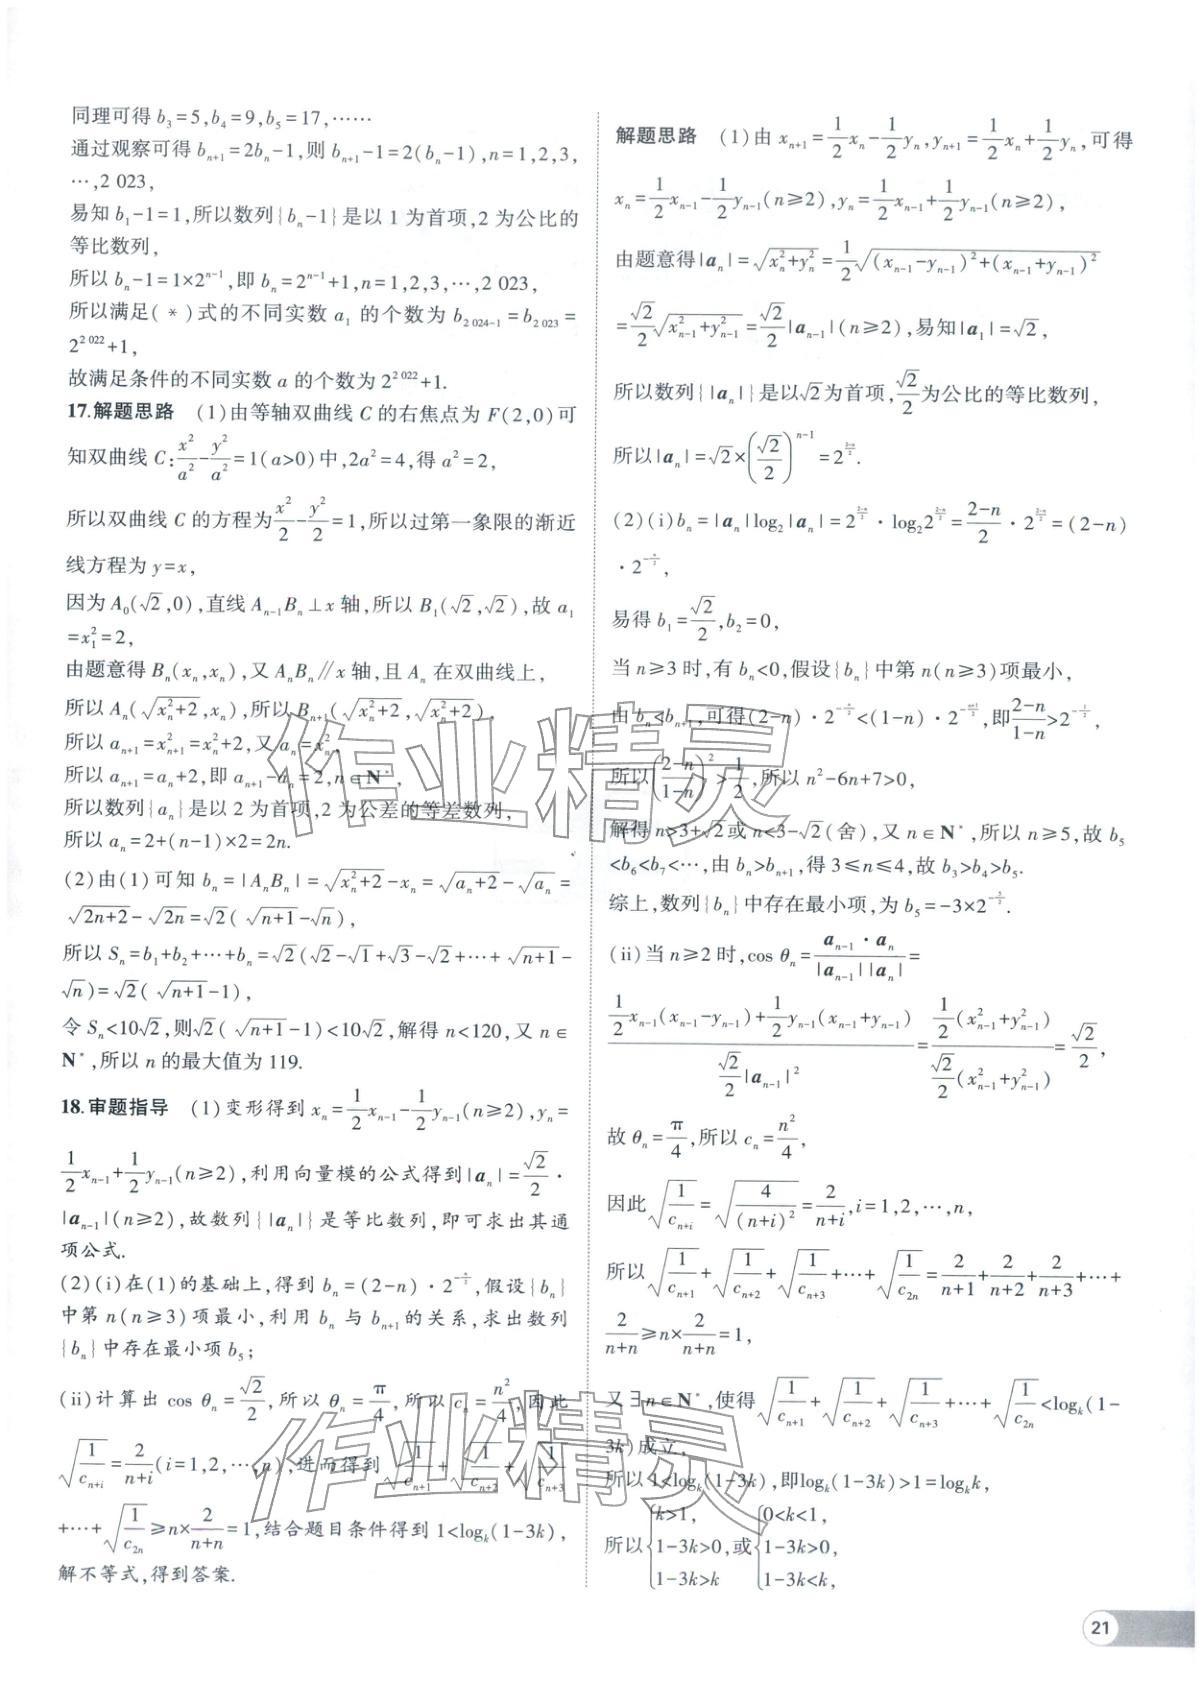 同理可得 b₃=5,b₄=9,b₅=17,……
通过观察可得 bₙ₊₁=2bₙ-1,则 bₙ₊₁-1=2(bₙ-1),n=1,2,3,
…,2 023,
易知 b₁-1=1,所以数列{bₙ-1}是以 1 为首项,2 为公比的
等比数列,
所以 bₙ-1=1×2ⁿ⁻¹,即 bₙ=2ⁿ⁻¹+1,n=1,2,3,…,2 023,
所以满足(*)式的不同实数 a₁ 的个数为 b_{2 024-1}=b_{2 023}=
2^{2 022}+1,
故满足条件的不同实数 a 的个数为 2^{2 022}+1.
17.解题思路 (1)由等轴双曲线 C 的右焦点为 F(2,0)可
知双曲线 C:x²/a²-y²/a²=1(a>0)中,2a²=4,得 a²=2,
所以双曲线 C 的方程为x²/2-y²/2=1,所以过第一象限的渐近
线方程为 y=x,
因为 A₀(√2,0),直线 Aₙ₋₁Bₙ⊥x 轴,所以 B₁(√2,√2),故 a₁
=x₁²=2,
由题意得 Bₙ(xₙ,xₙ),又 AₙBₙ∥x 轴,且 Aₙ 在双曲线上,
所以 Aₙ(√(xₙ²+2),xₙ),所以 Bₙ₊₁(√(xₙ²+2),√(xₙ²+2)),
所以 aₙ₊₁=xₙ₊₁²=xₙ²+2,又 aₙ=xₙ²,
所以 aₙ₊₁=aₙ+2,即 aₙ₊₁-aₙ=2,n∈N*,
所以数列{aₙ}是以 2 为首项,2 为公差的等差数列,
所以 aₙ=2+(n-1)×2=2n.
(2)由(1)可知 bₙ=|AₙBₙ|=√(xₙ²+2)-xₙ=√(aₙ+2)-√aₙ=
√(2n+2)-√(2n)=√2(√(n+1)-√n),
所以 Sₙ=b₁+b₂+…+bₙ=√2(√2-√1+√3-√2+…+√(n+1)-
√n)=√2(√(n+1)-1),
令 Sₙ<10√2,则√2(√(n+1)-1)<10√2,解得 n<120,又 n∈
N*,所以 n 的最大值为 119.
18.审题指导 (1)变形得到 xₙ=1/2xₙ₋₁-1/2yₙ₋₁(n≥2),yₙ=
1/2xₙ₋₁+1/2yₙ₋₁(n≥2),利用向量模的公式得到|aₙ|=√2/2·
|aₙ₋₁|(n≥2),故数列{|aₙ|}是等比数列,即可求出其通
项公式.
(2)(i)在(1)的基础上,得到 bₙ=(2-n)·2^{-n/2},假设{bₙ}
中第 n(n≥3)项最小,利用 bₙ 与 bₙ₊₁的关系,求出数列
{bₙ}中存在最小项 b₅;
(ii)计算出 cos θₙ=√2/2,所以 θₙ=π/4,所以 cₙ=n²/4,因此
√(1/cₙ₊ᵢ)=2/(n+i)(i=1,2,…,n),进而得到√(1/cₙ₊₁)+√(1/cₙ₊₂)+√(1/cₙ₊₃)
+…+√(1/c₂ₙ)≥n×2/(n+n)=1,结合题目条件得到 1<logₖ(1-3k),
解不等式,得到答案.
解题思路 (1)由 xₙ₊₁=1/2xₙ-1/2yₙ,yₙ₊₁=1/2xₙ+1/2yₙ,可得
xₙ=1/2xₙ₋₁-1/2yₙ₋₁(n≥2),yₙ=1/2xₙ₋₁+1/2yₙ₋₁(n≥2),
由题意得|aₙ|=√(xₙ²+yₙ²)=1/2√((xₙ₋₁-yₙ₋₁)²+(xₙ₋₁+yₙ₋₁)²)
=√2/2√(xₙ₋₁²+yₙ₋₁²)=√2/2|aₙ₋₁|(n≥2),易知|a₁|=√2,
所以数列{|aₙ|}是以√2为首项,√2/2为公比的等比数列,
所以|aₙ|=√2×(√2/2)ⁿ⁻¹=2^{(2-n)/2}.
(2)(i)bₙ=|aₙ|log₂|aₙ|=2^{(2-n)/2}·log₂2^{(2-n)/2}=(2-n)/2·2^{(2-n)/2}=(2-n)
·2^{-n/2},
易得 b₁=√2/2,b₂=0,
当 n≥3 时,有 bₙ<0,假设{bₙ}中第 n(n≥3)项最小,
由 bₙ<bₙ₊₁,可得(2-n)·2^{-n/2}<(1-n)·2^{-(n+1)/2},即(2-n)/(1-n)>2^{-1/2},
所以((2-n)/(1-n))²>1/2,所以 n²-6n+7>0,
解得 n>3+√2或 n<3-√2(舍),又 n∈N*,所以 n≥5,故 b₅
<b₆<b₇<…,由 bₙ>bₙ₊₁,得 3≤n≤4,故 b₃>b₄>b₅.
综上,数列{bₙ}中存在最小项,为 b₅=-3×2^{-5/2}.
(ii)当 n≥2 时,cos θₙ=(aₙ₋₁·aₙ)/(|aₙ₋₁||aₙ|)=
(1/2xₙ₋₁(xₙ₋₁-yₙ₋₁)+1/2yₙ₋₁(xₙ₋₁+yₙ₋₁))/(√2/2|aₙ₋₁|²)=(1/2(xₙ₋₁²+yₙ₋₁²))/(√2/2(xₙ₋₁²+yₙ₋₁²))=√2/2,
故 θₙ=π/4,所以 cₙ=n²/4,
因此√(1/cₙ₊ᵢ)=√(4/(n+i)²)=2/(n+i),i=1,2,…,n,
所以√(1/cₙ₊₁)+√(1/cₙ₊₂)+√(1/cₙ₊₃)+…+√(1/c₂ₙ)=2/(n+1)+2/(n+2)+2/(n+3)+…+
2/(n+n)≥n×2/(n+n)=1,
又∃n∈N*,使得√(1/cₙ₊₁)+√(1/cₙ₊₂)+√(1/cₙ₊₃)+…+√(1/c₂ₙ)<logₖ(1-
3k)成立,
所以 1<logₖ(1-3k),即logₖ(1-3k)>1=logₖk,
所以{k>1,1-3k>0,1-3k>k 或{0<k<1,1-3k>0,1-3k<k,
21
作业精灵
作业精灵